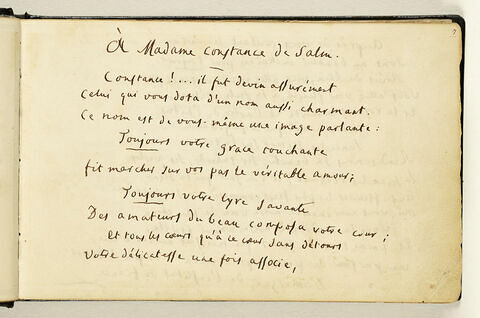 À Madame Constance de Salm.
Constance !... il fut devin assurément
Celui qui vous dota d'un nom aussi charmant.
Ce nom est de vous-même une image parlante :
Toujours votre grace touchante
fit marcher sur vos pas le véritable amour ;
Toujours votre lyre savante
Des amateurs du beau composa votre cour ;
Et tous les cœurs qu'à ce cœur sans détours
Votre délicatesse une fois associe,